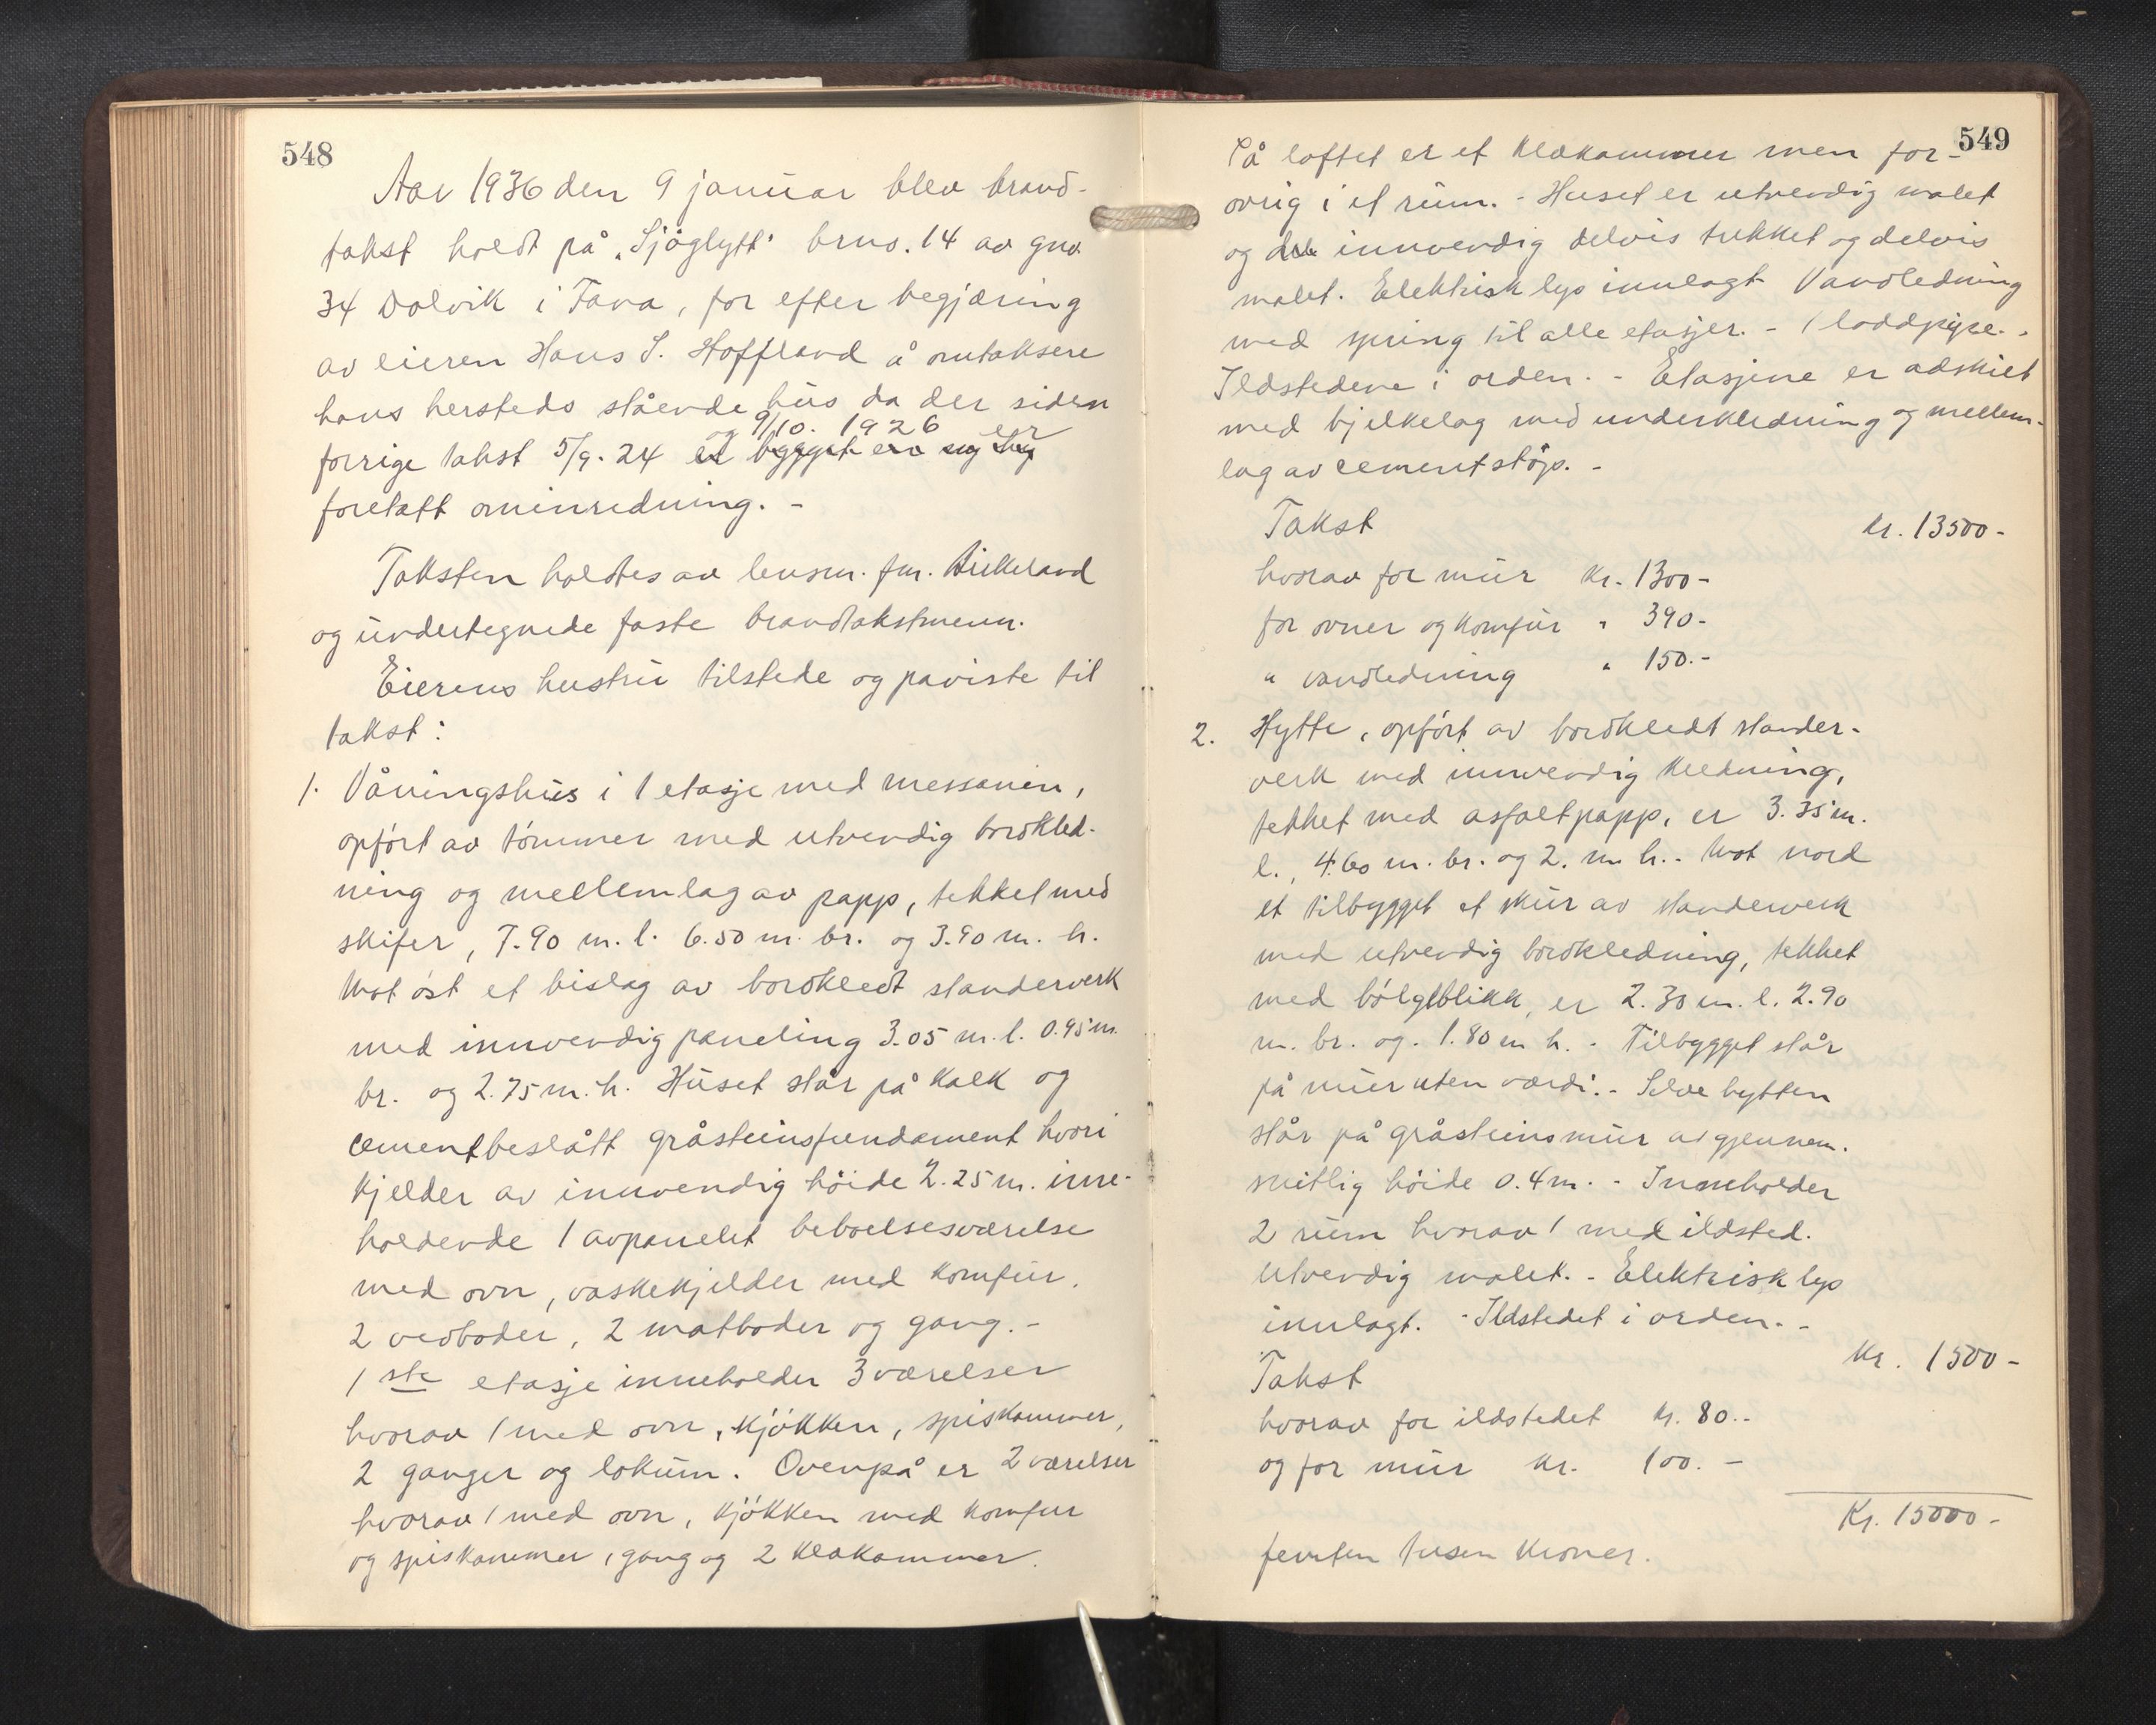 548
Aar 1936 den 9 januar blev brand-
takst holdt på "Sjöglytt" brno. 14 av gno.
34 Dolvik i Fana, for efter begjæring
av eieren Hans S. Hoffland å omtaksere
hans hersteds stående hus da der siden
og 9/10. 1926 er
forrige takst 5/9. 24 er bygget
foretatt ominredning. -
Taksten holdtes av lensm. fm. Birkeland
og undertegnede faste brandtakstmenn.
Eierens hustru tilstede og paviste til
takst:
1. Våningshus i 1 etasje med messanin,
opført av tømmer med utvendig bordkled-
ning og mellemlag av papp, tekket med
skifer, 7.90 m. l. 6.50 m. br. og 3.90 m. h.
Mot øst et bislag av bordkledt standerverk
med innvendig paneling 3.05 m. l. 0.95 m.
br. og 2.75 m. h. Huset står på kalk og
cementbeslått gråsteinsfundament hvori
kjelder av innvendig høide 2.25 m. inne-
holdende 1 avpanelet beboelsesværelse
med ovn, vaskekjelder med komfur,
2 vedboder, 2 matboder og gang. -
1ste etasje inneholder 3 værelser
hvorav 1 med ovn, kjøkken, spiskammer,
2 ganger og lokum. Ovenpå er 2 værelser
hvorav 1 med ovn, kjøkken med komfur
og spiskammer, gang og 2 klækammer.
549
På loftet er et klækammer men for-
øvrig i et rum. - Huset er utvendig malet
og innvendig delvis trekket og delvis
malet. Elektrisk lys innlagt. Vandledning
med spring til alle etasjer. - 1 loddpipe. -
Ildstedene i orden. - Etasjene er adskilt
med bjelkelag med underkledning og mellem-
lag av cementstøp. -
Takst kr. 13500 -
hvorav for mur kr. 1300 -
for ovner og komfur " 390 -
" vandledning " 150. -
2. Hytte, opført av bordkledt stander-
verk med innvendig kledning,
tekket med asfaltpapp, er 3.35 m.
l., 4.60 m. br. og 2. m h. - Mot nord
et tilbygget et skur av standerverk
med utvendig bordkledning, tekket
med bølgeblikk, er 2.30 m. l. 2.90
m. br. og. 1.80 m h. - Tilbygget står
på mur uten værdi. - Selve hytten
står på gråsteinsmur av gjennem-
snitlig høide 0.4 m. - Inneholder
2 rum hvorav 1 med ildsted.
Utvendig malet. - Elektrisk lys
innlagt. - Ildstedet i orden. -
Takst kr. 1500 -
hvorav for ildstedet kr. 80. -
og for mur kr. 100. -
Kr. 15000 -
femten tusen kroner.